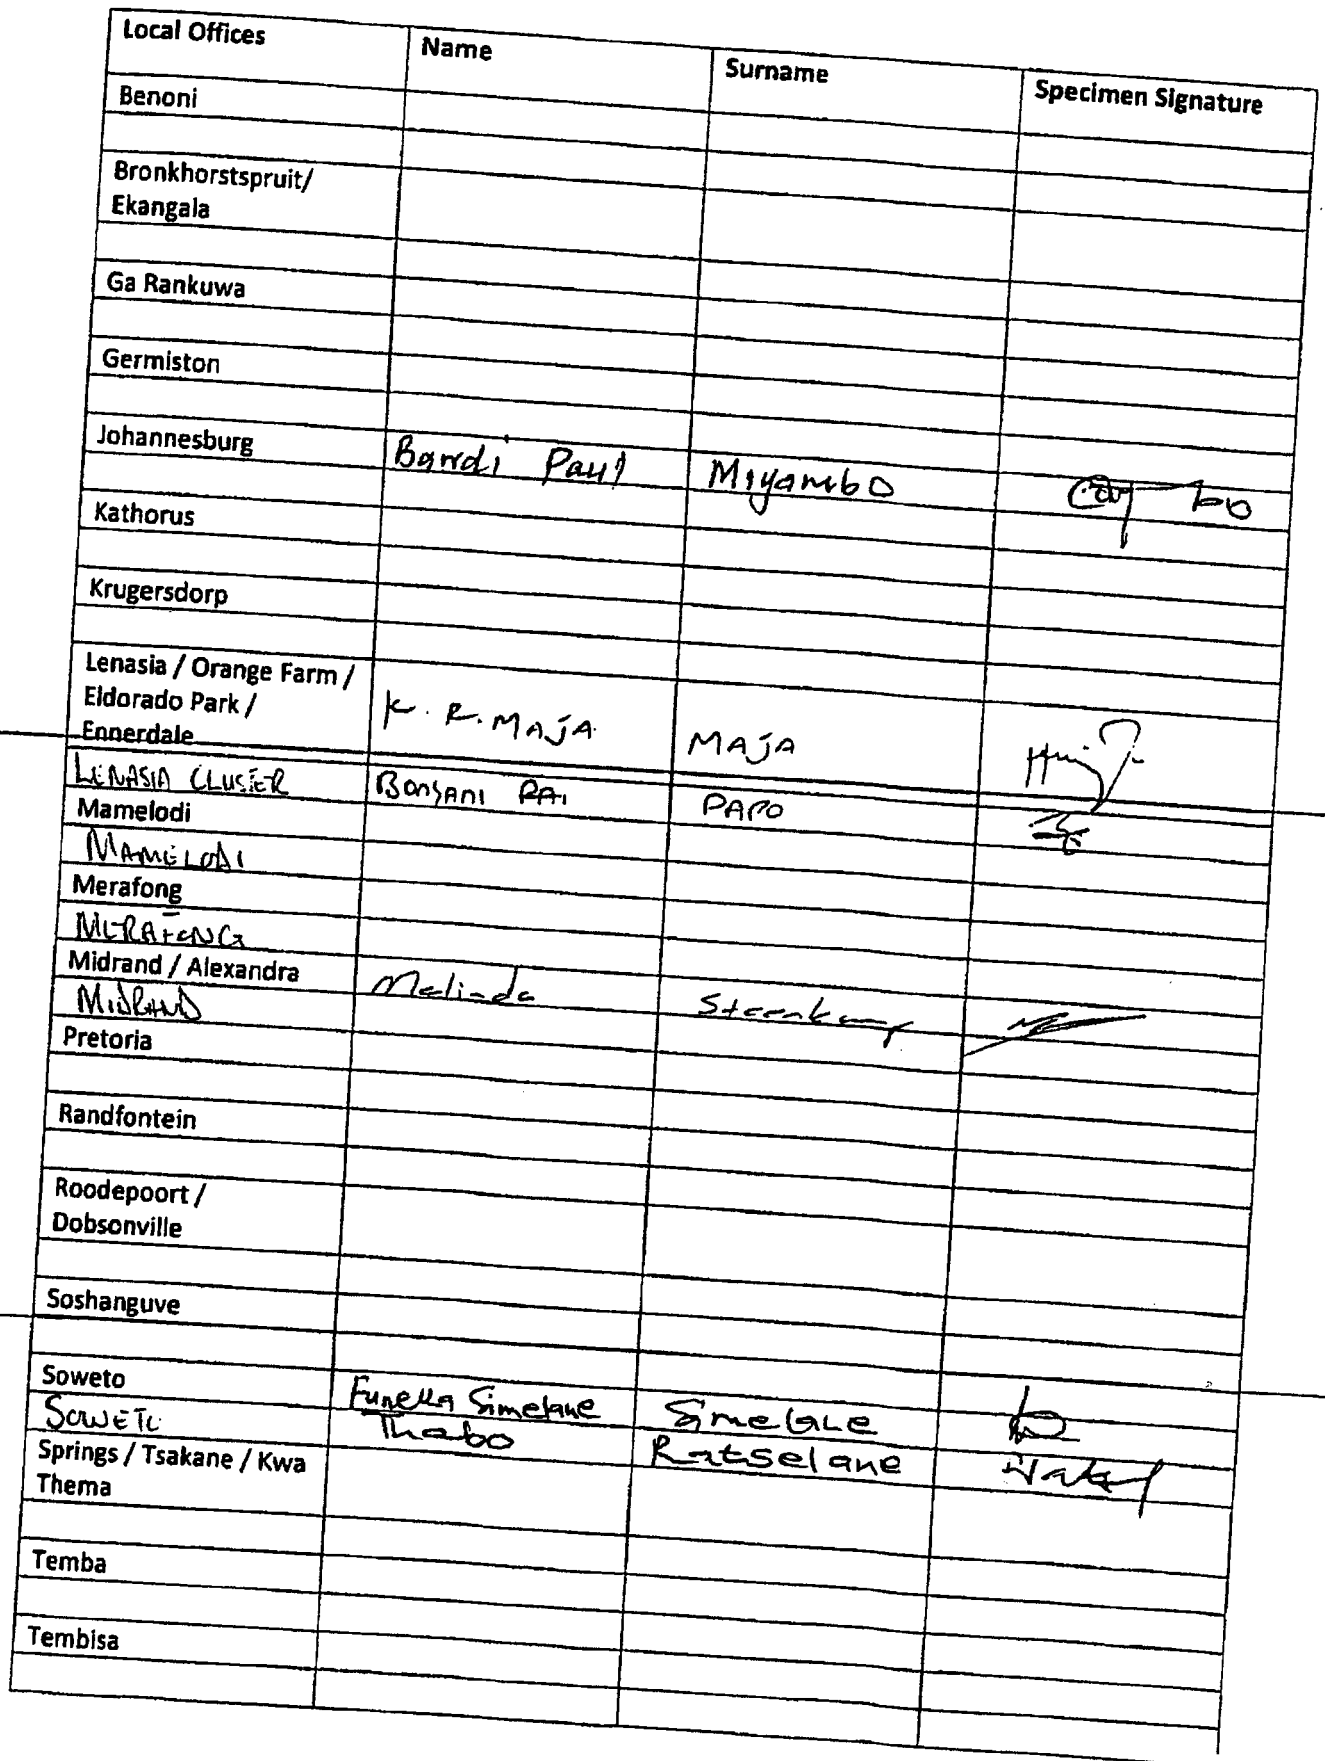 Local Offices Name Surname Specimen Signature
Benoni
Bronkhorstspruit/
Ekangala
Ga Rankuwa
Germiston
Johannesburg Bandi Paul Miyambo
Kathorus
Krugersdorp
Lenasia / Orange Farm /
Eldorado Park /
Ennerdale K. R. MAJA MAJA
LENASIA CLUSTER PAPO
Mamelodi
MAMELODI
Merafong
MERAFONG
Midrand / Alexandra Melinda Steenkamp
MIDRAND
Pretoria
Randfontein
Roodepoort /
Dobsonville
Soshanguve
Soweto Simelane Simelane
SOWETO Thabo Ratselane
Springs / Tsakane / Kwa
Thema
Temba
Tembisa